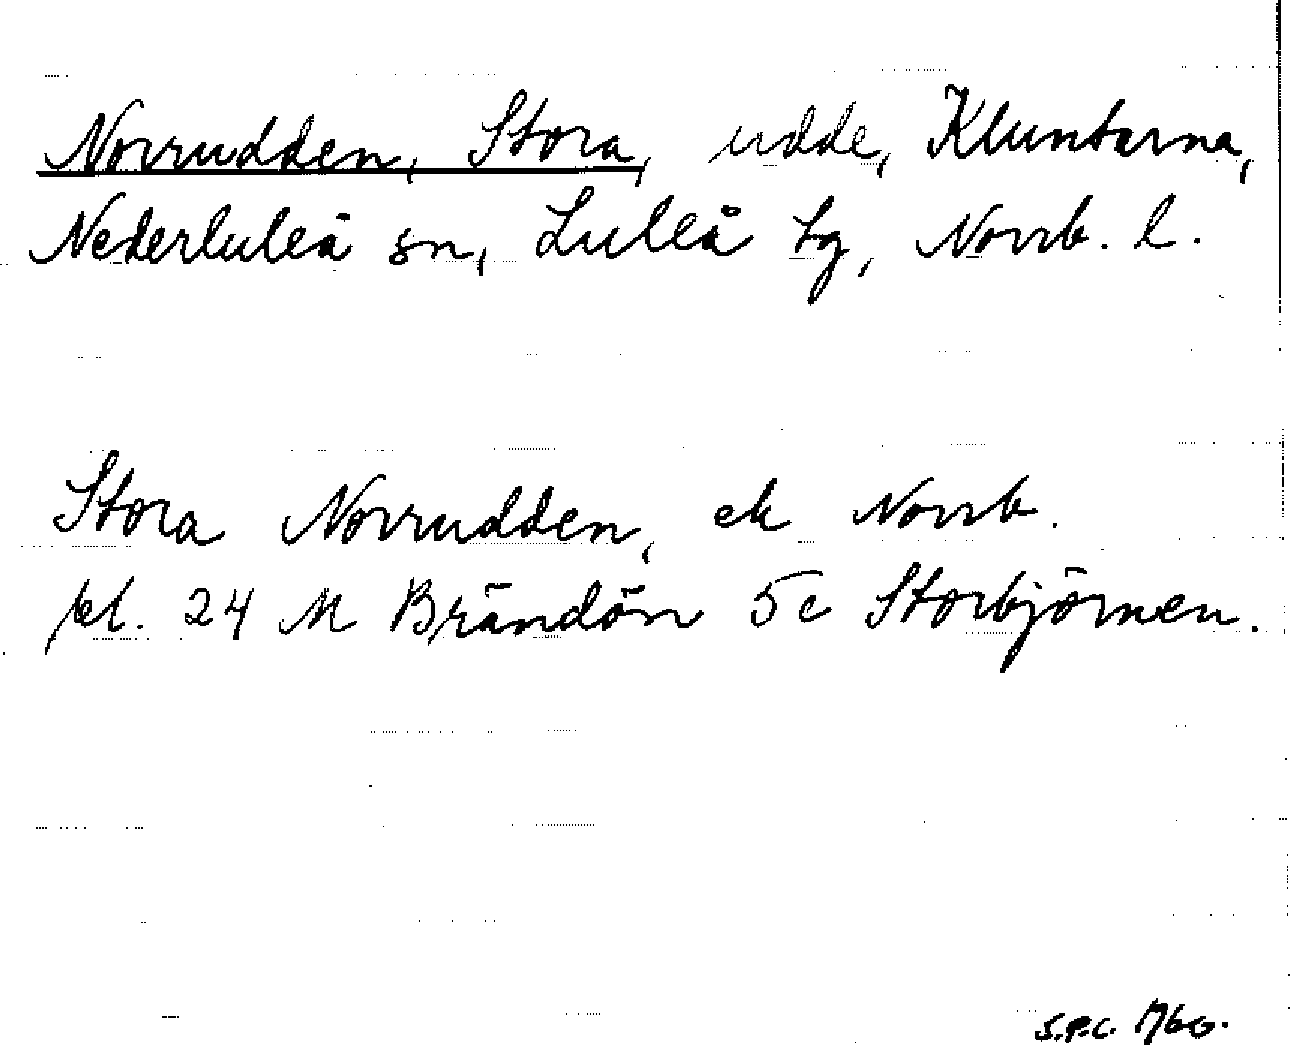 Norrudden, Stora, udde, Kluntarna,
Nederluleå sn, Luleå tg, Norrb. l.
Stora Norrudden, ek Norrb.
bl. 24 M Brändön 5c Storbjörnen.
S.P.C. 1960.